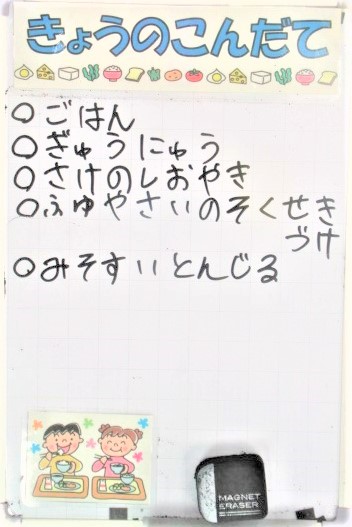 きょうのこんだて
○ごはん
○ぎゅうにゅう
○さけのしおやき
○ふゆやさいのそくせき
づけ
○みそすいとんじる
MAGNET
ERASER